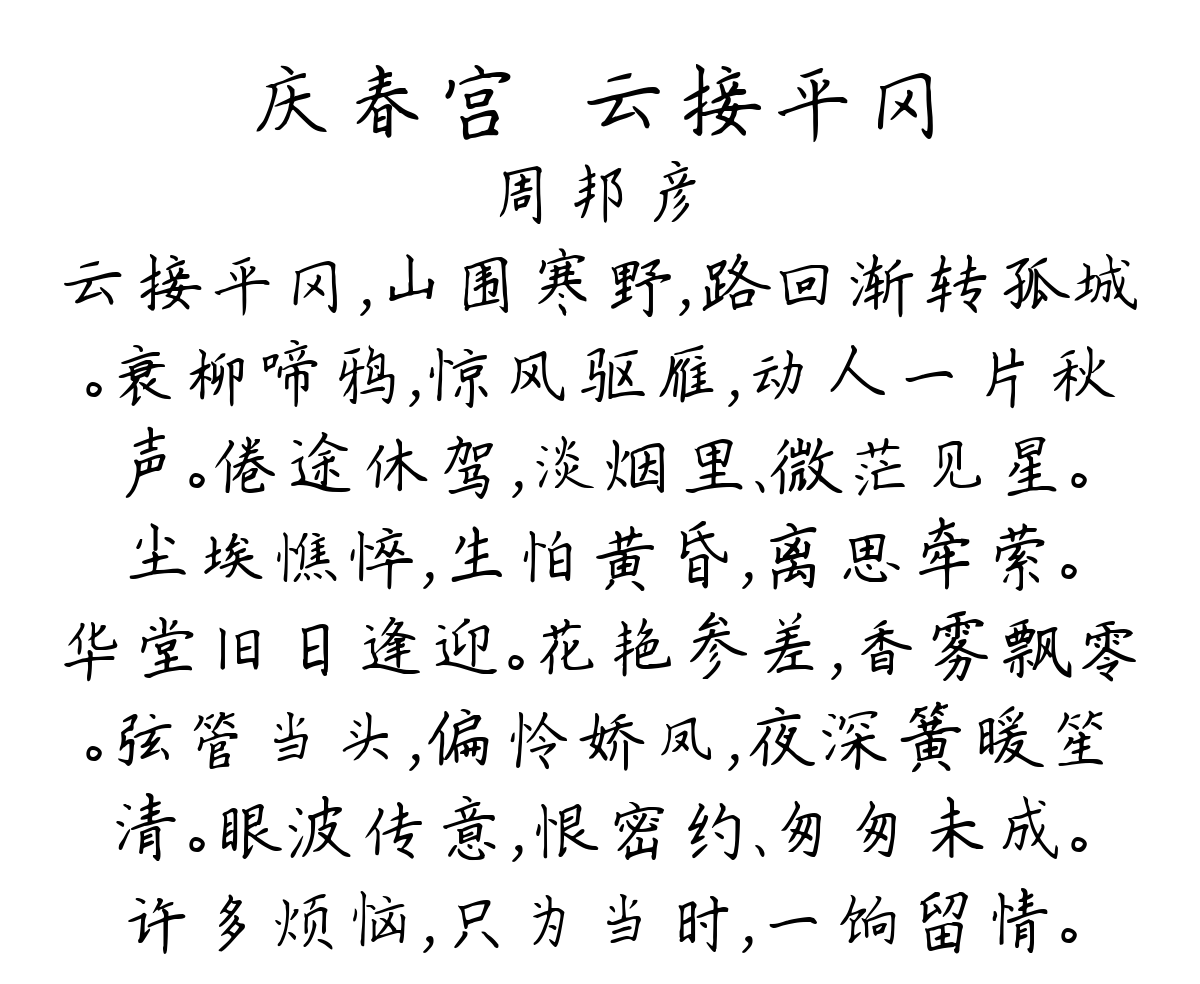 庆春宫 云接平冈
周邦彦
云接平冈,山围寒野,路回渐转孤城
。衰柳啼鸦,惊风驱雁,动人一片秋
声。倦途休驾,淡烟里、微茫见星。
尘埃憔悴,生怕黄昏,离思牵萦。
华堂旧日逢迎。花艳参差,香雾飘零
。弦管当头,偏怜娇凤,夜深簧暖笙
清。眼波传意,恨密约、匆匆未成。
许多烦恼,只为当时,一饷留情。